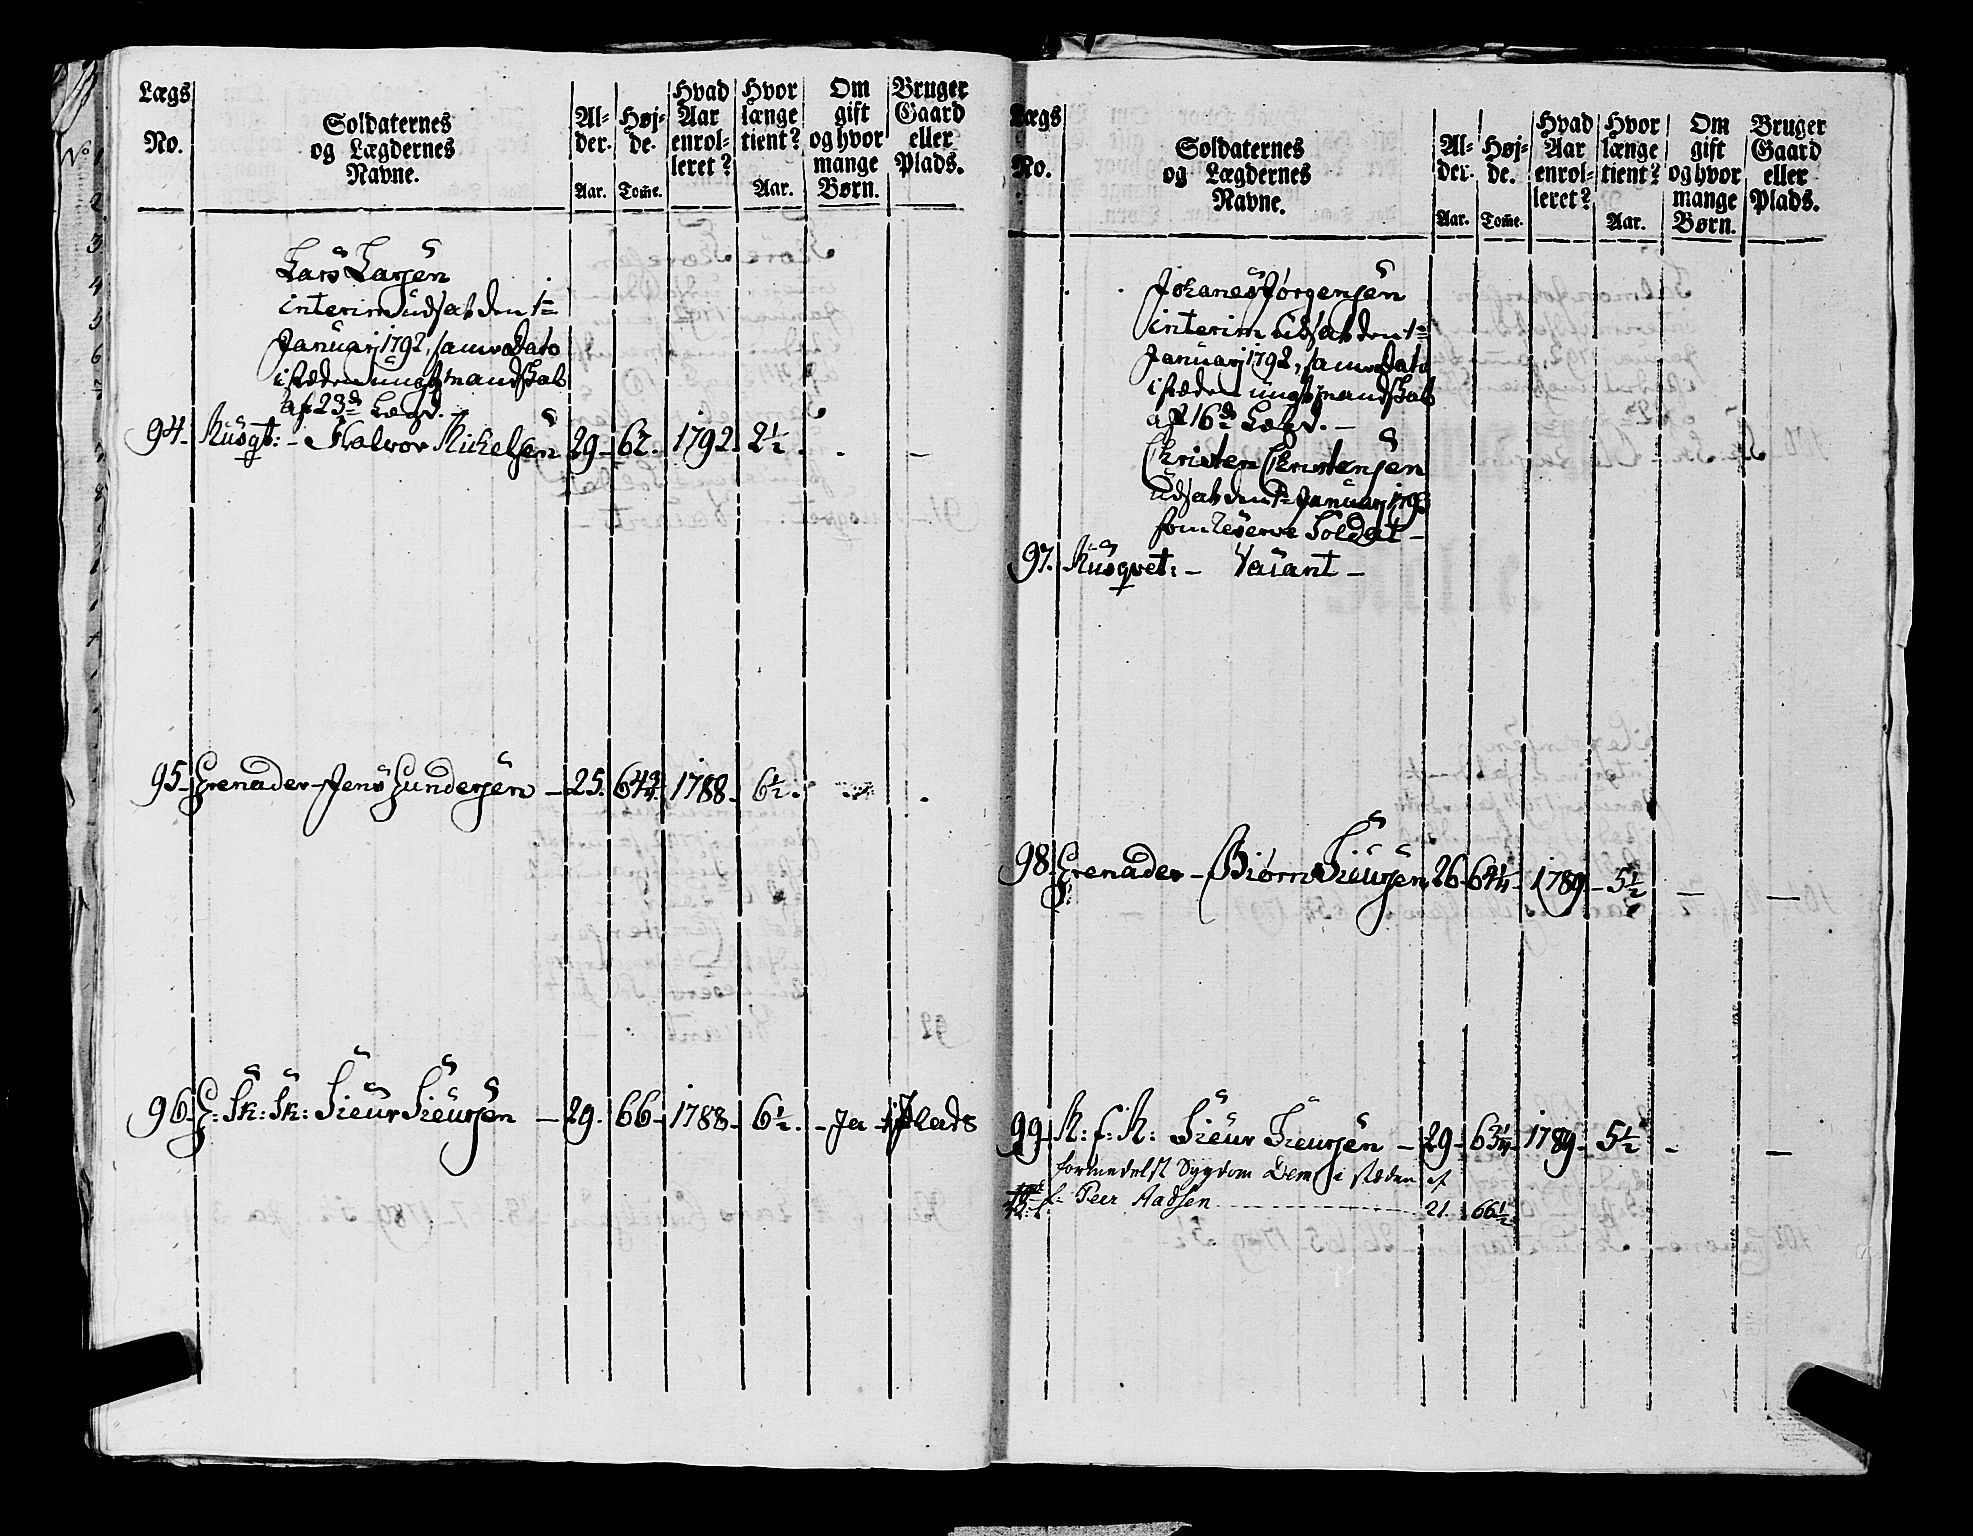 Lægs
No.
Soldaternes
og Lægdernes
Navne.
Al-
der.
Aar.
Høj-
de.
Tom̄e.
Hvad
Aar
enrol-
leret?
Hvor
længe
tient?
Aar.
Om
gift
og hvor
mange
Børn.
Bruger
Gaard
eller
Plads.
Lars Larsen
interim udsat den 1=
Januarj 1792, samme Dato
i stæden ungt mandskab
af 23de Lægd.
94. Musqt: - Halvor Mikelsen 29 - 62. 1792. 2½.
95. Grenader - Jens Gundersen - 25. 64¾. 1788. 6½.
96. G: Sk: Sk: Sieur Sieursen - 29. 66 - 1788 - 6½. - Ja - 1 Plads
Lægs
No.
Soldaternes
og Lægdernes
Navne.
Al-
der.
Aar.
Høj-
de.
Tom̄e.
Hvad
Aar
enrol-
leret?
Hvor
længe
tient?
Aar.
Om
gift
og hvor
mange
Børn.
Bruger
Gaard
eller
Plads.
Johanes Jørgensen
interim udsat den 1=
Januarj 1792, samme Dato
i stæden ungt mandskab
af 16de Lægd. -
Christen Christensen
udsat den 1= Januarj 1793
som Reserve Soldat -
97. Musqvet: - Vacant -
98. Grenader - Biørn Sieursen 26 - 64¼ - 1789 - 5½ - -
99. M: f: K: Sieur Sieursen - 29 - 63¼ - 1789 - 5½ - -
formedelst Sygdom Dem i stæden af
Peer Aadsen 21. 66½